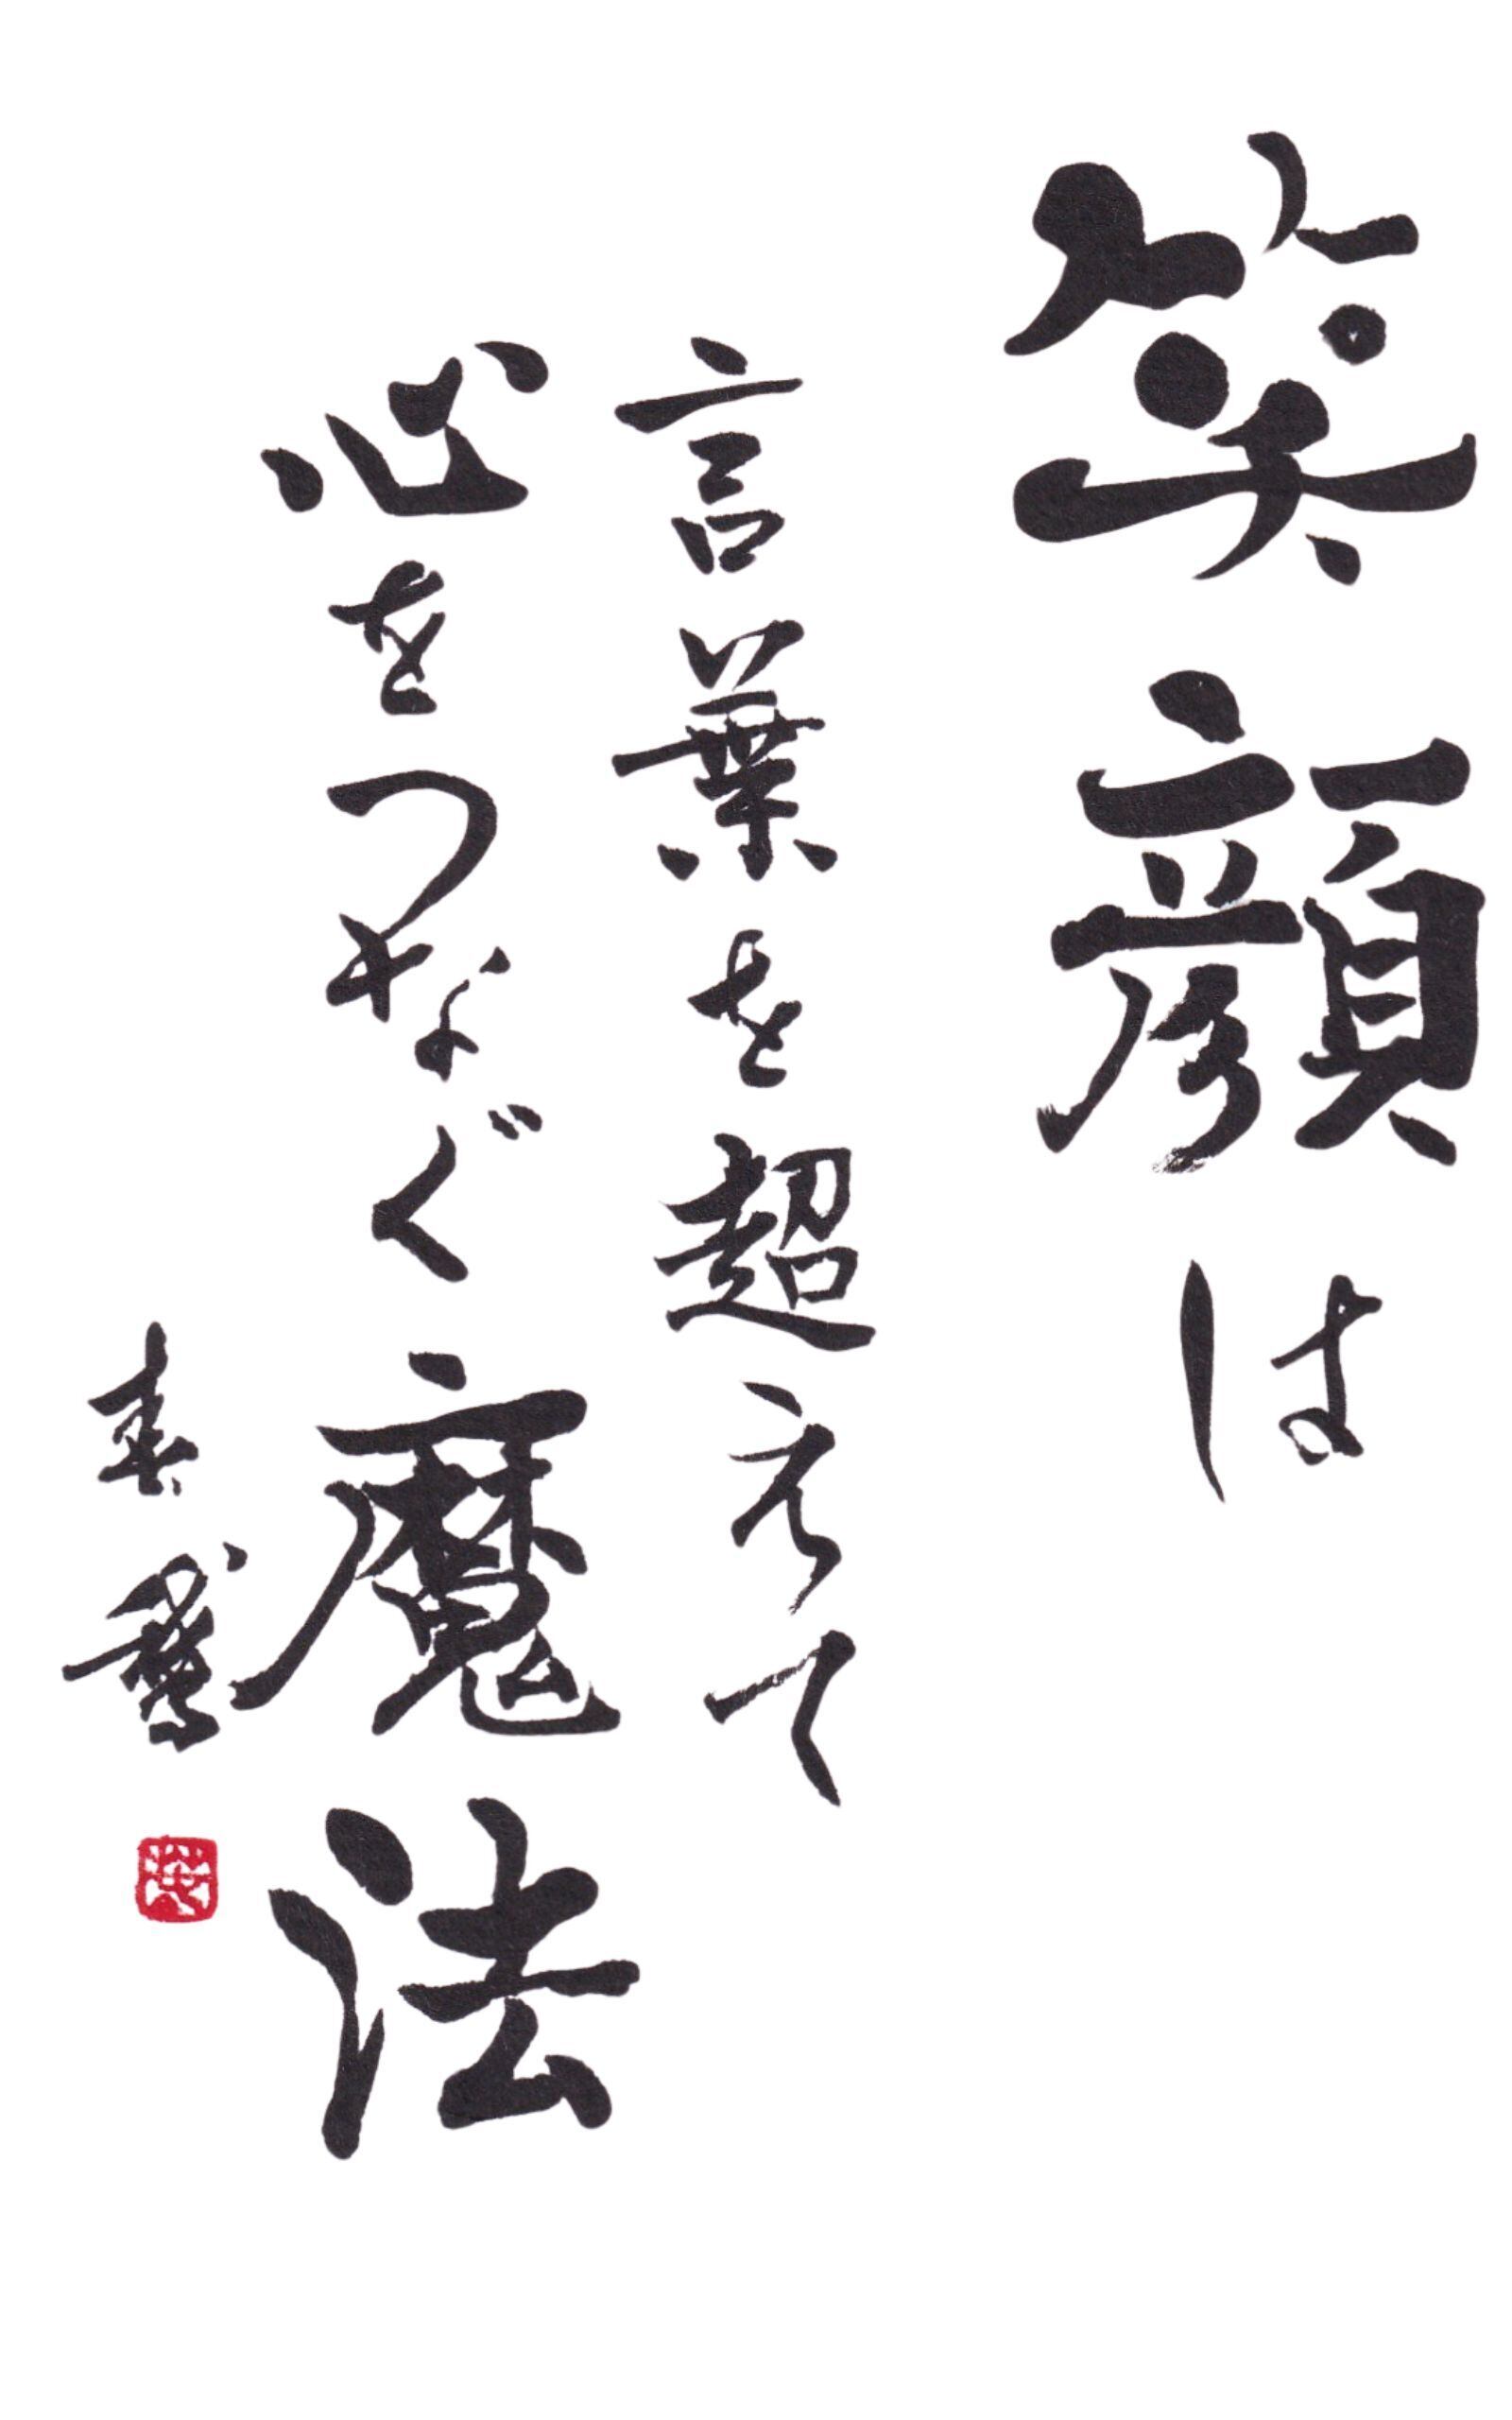 笑顔は
言葉を超えて
心をつなぐ魔法